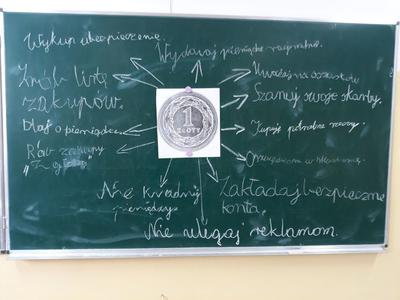 Wykup ubezpieczenie.
Wydawaj pieniądze racjonalnie.
Zrób listę
zakupów.
Uważaj na oszustów
Szanuj swoje skarby.
1
ZŁOTY
Dbaj o pieniądze.
Kupuj potrzebne rzeczy.
Rób zakupy
"Z głową"
Oszczędzaj w
Nie kradnij
pieniędzy
Zakładaj bezpieczne
konta.
Nie ulegaj reklamom.